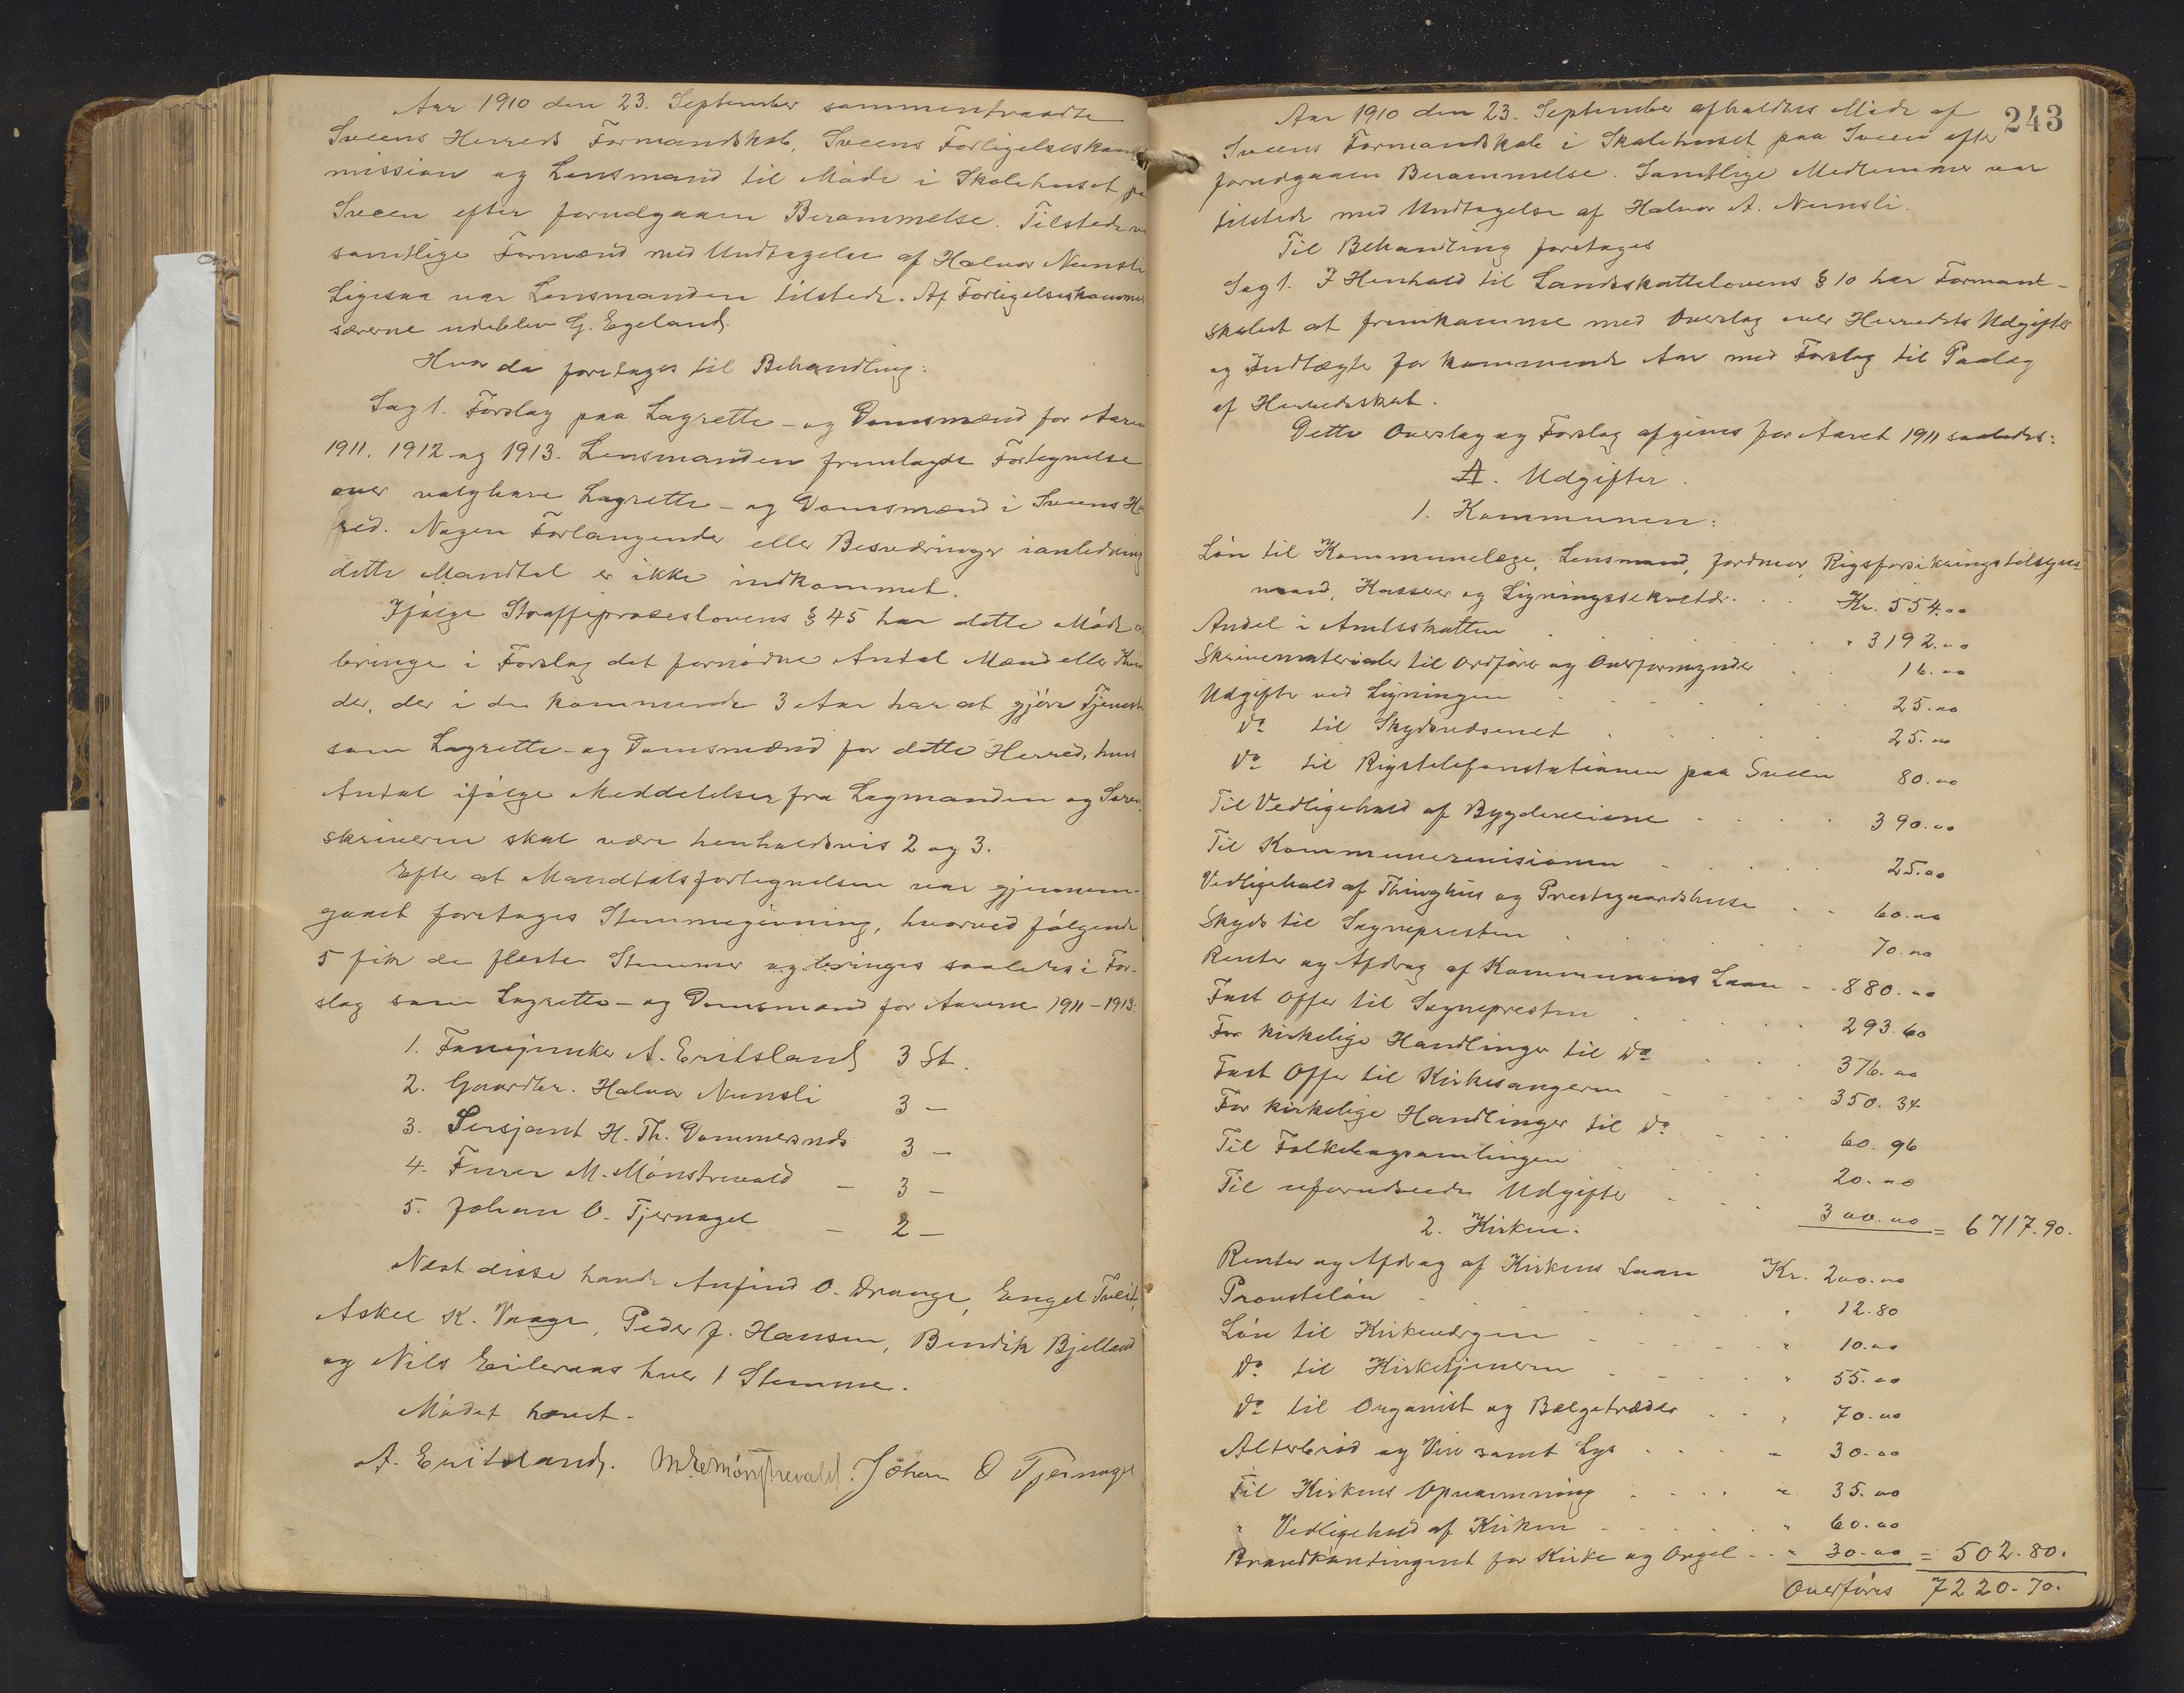 Aar 1910 den 23. September sammentraadte
Sveens Herreds Formandskab, Sveens Forligelseskom
mission og Lensmand til Møde i Skolehuset pa
Sveen efter forudgaaen Berammelse. Tilstede va
samtlige Formænd med Undtagelse af Halvor Nernsli
Ligesaa var Lensmanden tilstede. Af Forligelseskommis
særerne udeblev G. Egeland.
Hvor da foretages til Behandling:
Sag 1. Forslag paa Lagrette- og Domsmænd for Aaren
1911, 1912 og 1913. Lensmanden fremlagde Fortegnelse
over valgbare Lagrette- og Domsmænd i Sveens He
red. Nogen Forlangender eller Besværinger i anledning
dette Mandtal er ikke indkommet.
Ifølge Straffeproceslovens § 45 har dette Møde at
bringe i Forslag det fornødne Antal Mænd eller Kvin
der, der i de kommende 3 Aar har at gjøre Tjeneste
som Lagrette- og Domsmænd for dette Herred, hvis
Antal ifølge Meddelelser fra Lagmanden og Soren-
skriveren skal være henholdsvis 2 og 3.
Efter at Mandtalsfortegnelsen var gjennem-
gaaet foretages Stemmegivning, hvorved følgende
5 fik de fleste Stemmer og bringes saaledes i For-
slag som Lagrette- og Domsmænd for Aarene 1911-1913:
1. Fanejunker A. Eritsland 3 St.
2. Gaardbr. Halvor Nernsli 3 -
3. Sersjant H. Th. Dommersnds 3 -
4. Furer M. Mønstrevold - 3 -
5. Johan O. Tjernagel - 2 -
Næst disse havde Anfind O. Drange, Engel Tveit,
Askel K. Vaage, Peder J. Hansen, Bendik Bjelland
og Nils Eileraas hver 1 Stemme.
Mødet hævet.
A. Eritsland. M. E. Mønstrevold. Johan O Tjernagel
243
Aar 1910 den 23. September afholdtes Møde af
Sveens Formandskab i Skolehuset paa Sveen efter
forudgaaen Berammelse. Samtlige Medlemmer var
tilstede med Undtagelse af Halvor A. Nernsli.
Til Behandling foretages
Sag 1. I Henhold til Landsskattelovens § 10 har Formand-
skabet at fremkomme med Overslag over Herredets Udgifter
og Indtægter for kommende Aar med Forslag til Paalæg
af Herredsskat.
Dette Overslag og Forslag afgives for Aaret 1911 saaledes:
A. Udgifter.
1. Kommunen:
Løn til Kommunelæge, Lensmand, Jordmor, Rigsforsikringstilsyns-
mand, Kasserer og Ligningssekretær. Kr. 554.00
Andel i Amtsskatten " 3192.00
Skrivematerialer til Ordfører og Overformynder 16.00
Udgifter ved Ligningen 25.00
Do til Skydsvæsenet 25.00
Do til Rigstelefonstationen paa Sveen 80.00
Til Vedligehold af Bygdeveiene 390.00
Til Kommunerevisionen 25.00
Vedligehold af Thinghus og Prestegaardshuse 60.00
Skyds til Sognepresten 70.00
Renter og Afdrag af Kommunens Laan 880.00
Fast Offer til Sognepresten 293.60
For kirkelige Handlinger til Do 376.00
Fast Offer til Kirkesangeren 350.34
For kirkelige Handlinger til Do 60.96
Til Folkebogsamlingen 20.00
Til uforudseede Udgifter 300.00 = 6717.90.
2. Kirken.
Renter og Afdrag af Kirkens Laan Kr. 200.00
Provsteløn " 12.80
Løn til Kirkevergen " 10.00
Do til Kirketjeneren " 55.00
Do til Organist og Bælgetræder " 70.00
Alterbrød og Vin samt Lys " 30.00
Til Kirkens Opvarmning " 35.00
" Vedligehold af Kirken " 60.00
Brandkontingent for Kirke og Orgel " 30.00 = 502.80.
Overføres 7220.70.